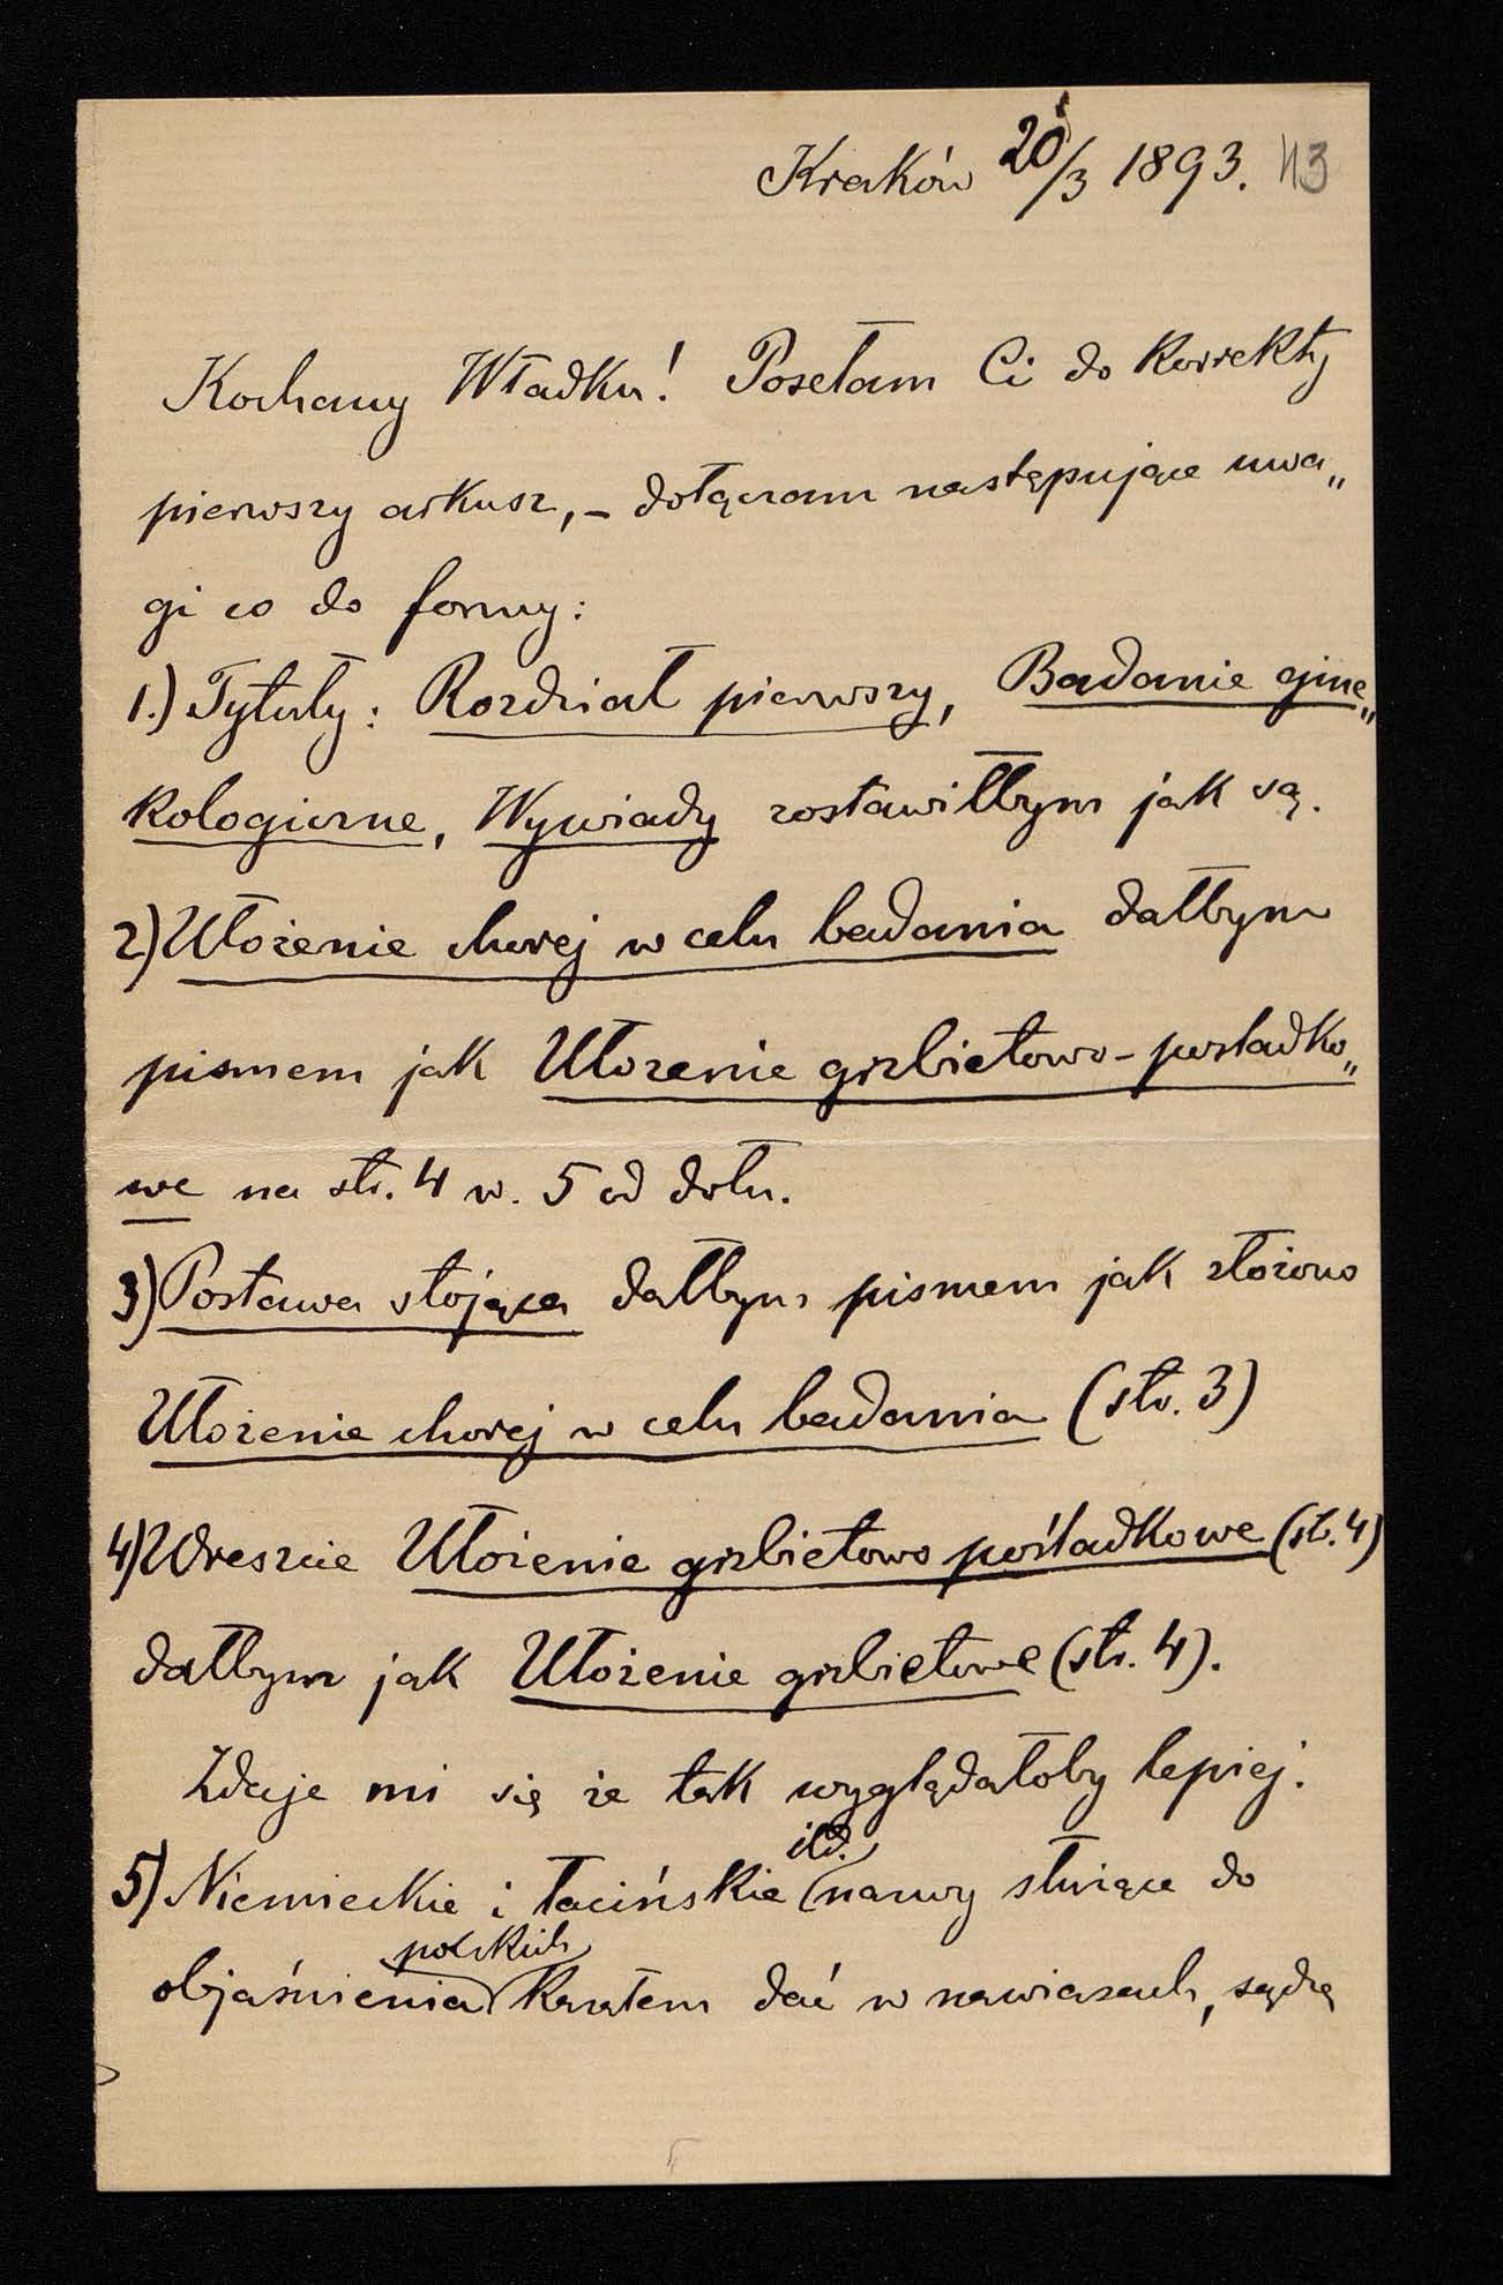 Kraków 20/3 1893. 43
Kochany Władku! Posełam Ci do Korrekty
pierwszy arkusz, – dołączam następujące uwa„
gi co do formy:
1.) Tytuły: Rozdział pierwszy, Badanie gine„
kologiczne, Wywiady zostawiłbym jak są.
2) Ułożenie chorej w celu badania dałbym
pismem jak Ułożenie grzbietowo-pośladko„
we na str. 4 w. 5 od dołu.
3) Postawa stojąca dałbym pismem jak złożono
Ułożenie chorej w celu badania (str. 3)
4) Wreszcie Ułożenie grzbietowo pośladkowe (st. 4)
dałbym jak Ułożenie grzbietowe (str. 4).
Zdaje mi się że tak wyglądałoby lepiej.
itd.
5) Niemieckie i łacińskie nazwy służące do
polskich
objaśnienia Kazałem dać w nawiasach, sądzę